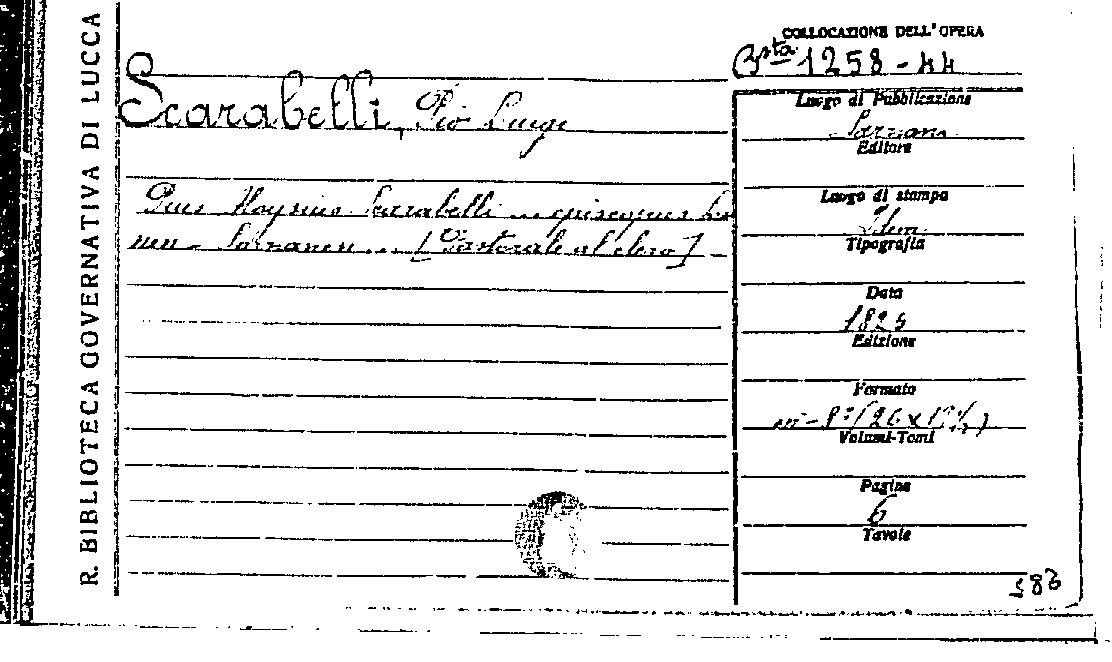 R. BIBLIOTECA GOVERNATIVA DI LUCCA
Scarabelli, Pio Luigi
Pius Aloysius Scarabelli ... episcopus Lu
nen - Sarzanen ... [Pastorale al clero]
COLLOCAZIONE DELL'OPERA
Bsta 1258-44
Luogo di Pubblicazione
Sarzana
Editore
Luogo di stampa
Idem
Tipografia
Data
Edizione
Formato
Volumi-Tomi
Pagine
6
Tavole